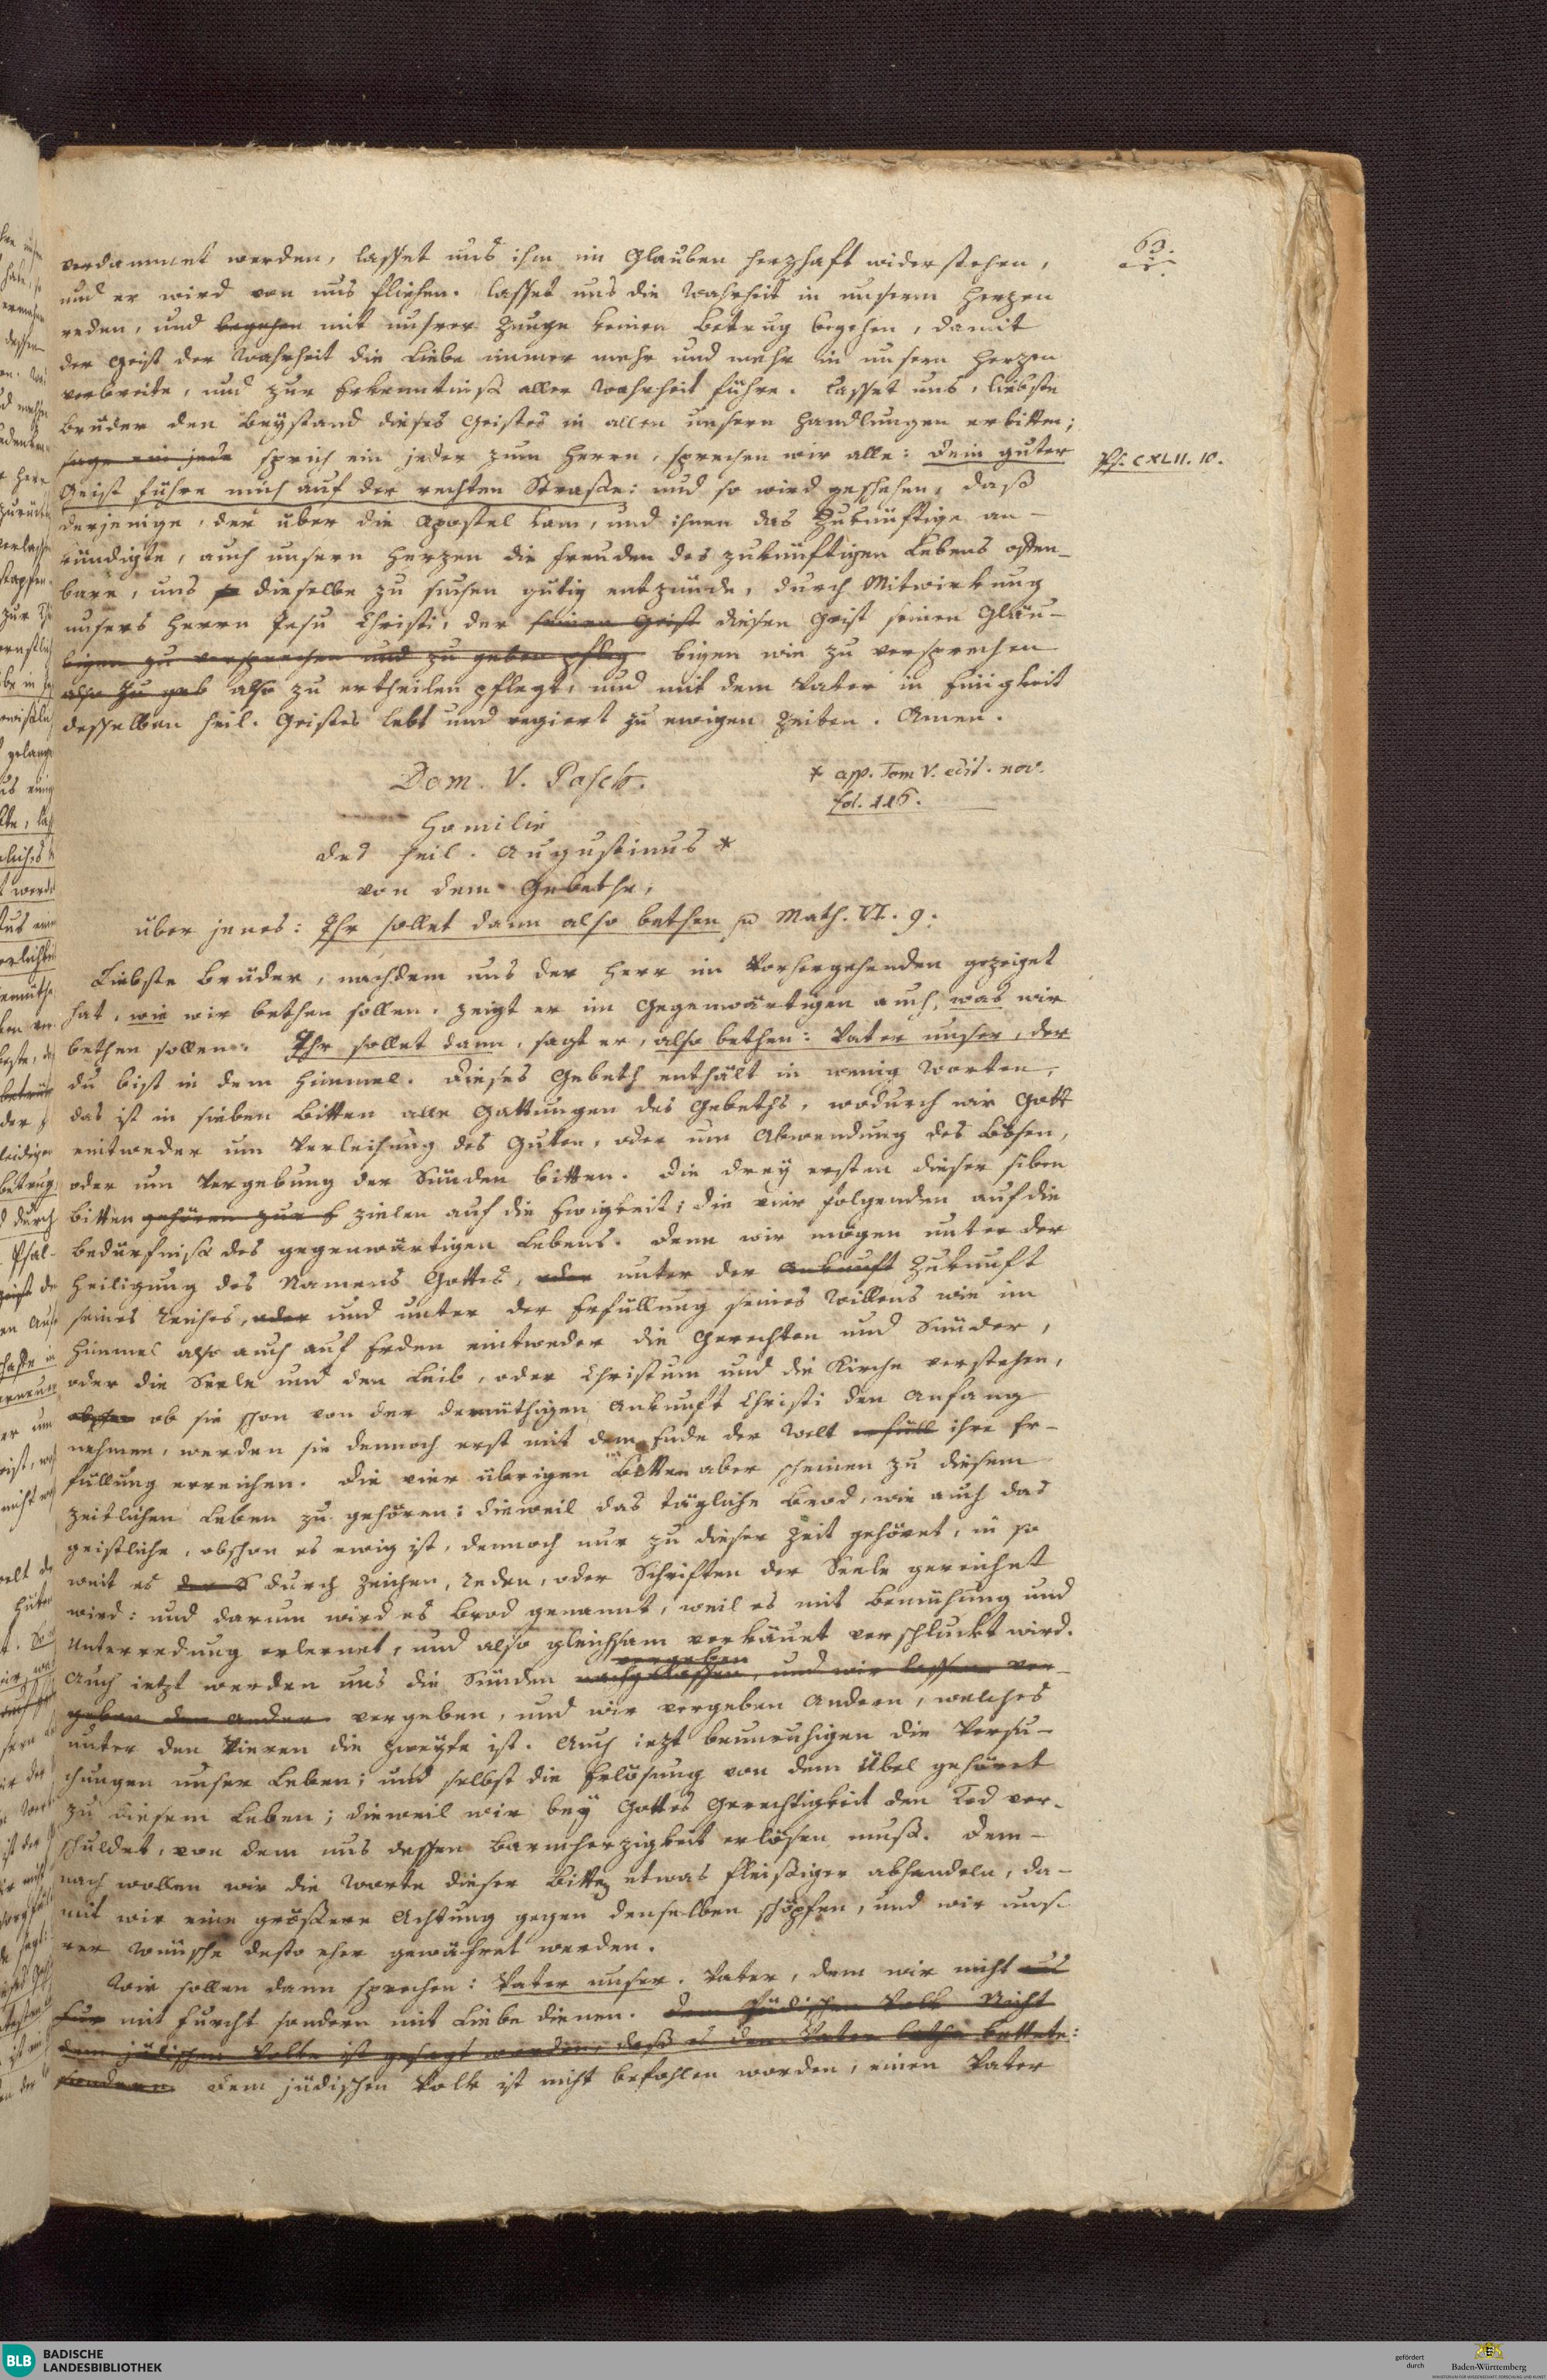 63.
verdammet werden, lasset uns ihm im Glauben herzhaft widerstehen,
und er wird von uns fliehen. lasset uns die Wahrheit in unserm Herzen
reden, und begehen mit unsrer Zunge keinen Betrug begehen, damit
der Geist der Wahrheit die Liebe immer mehr und mehr in unsern Herzen
verbreite, und zur Erkenntniß aller Wahrheit führe. Lasset uns, liebste
Brüder den Beystand dieses Geistes in allen unsern Handlungen erbitten;
sage ein jede sprich ein jeder zum Herrn, sprechen wir alle: Dein guter
Ps. CXLII. 10.
Geist führe mich auf der rechten Straße: und so wird geschehen, daß
derjenige, der über die Apostel kam, und ihnen das Zukünftige an-
kündigte, auch unsern Herzen die Freuden des zukünftigen Lebens offen-
bare, uns dieselbe zu suchen gütig entzünde, durch Mitwirkung
unsers Herrn Jesu Christi, der seinen Geist diesen Geist seinen Gläu-
bigen zu versprechen und zu geben pfleg bigen wie zu versprechen
also zu geb also zu ertheilen pflegt, und mit dem Vater in Einigkeit
desselben heil. Geistes lebt und regiert zu ewigen Zeiten. Amen.
Dom. V. Pasch.
* app. Tom V. edit. nov.
fol. 116.
Homilie
des heil. Augustinus *
von dem Gebethe,
über jenes: Ihr sollet dann also bethen Math. VI. 9.
Liebste Brüder, nachdem uns der Herr im Vorhergehenden gezeiget
hat, wie wir bethen sollen, zeigt er im Gegenwärtigen auch, was wir
bethen sollen. Ihr sollet dann, sagt er, also bethen: Vater unser, der
du bist in dem Himmel. Dieses Gebeth enthält in wenig Worten,
das ist in sieben Bitten alle Gattungen des Gebeths, wodurch wir Gott
eintweder um Verleihung des Guten, oder um Abwendung des Bösen,
oder um Vergebung der Sünden bitten. Die drey ersten dieser siben
bitten gehören zur E zielen auf die Ewigkeit; die vier folgenden auf die
bedürfniß des gegenwärtigen Lebens. Denn wir mögen unter der
Heiligung des Namens Gottes, oder unter der Ankunft Zukunft
seines Reiches, oder und unter der Erfüllung seines Willens wie im
Himmel also auch auf Erden eintweder die Gerechten und Sünder,
oder die Seele und den Leib, oder Christum und die Kirche verstehen,
obschon ob sie schon von der demüthigen Ankunft Christi den Anfang
nehmen, werden sie dennoch erst mit dem Ende der Welt erfüll ihre Er-
füllung erreichen. Die vier übrigen Bitten aber scheinen zu diesem
zeitlichen Leben zu gehören: dieweil das tägliche Brod, wie auch das
geistliche, obschon es ewig ist, dennoch nur zu dieser Zeit gehöret, in so
weit es der S durch Zeichen, Reden, oder Schriften der Seele gereichet
wird: und darum wird es Brod genannt, weil es mit Bemühung und
Unterredung erlernet, und also gleichsam verkäuet verschluckt wird.
vergeben
Auch ietzt werden uns die Sünden nachgelassen, und wir lassen ver-
geben den andern vergeben, und wir vergeben andern, welches
unter den Vieren die zweyte ist. Auch iezt beunruhigen die Versu-
chungen unser Leben; und selbst die Erlösung von dem Übel gehöret
zu diesem Leben; dieweil wir bey Gottes Gerechtigkeit den Tod ver-
schuldet, von dem uns dessen Barmherzigkeit erlösen muß. Dem-
nach wollen wir die Worte dieser Bitten etwas fleißiger abhandeln, da-
mit wir eine größere Achtung gegen denselben schöpfen, und wir uns-
rer Wünsche desto eher gewähret werden.
Wir sollen dann sprechen: Vater unser. Vater, dem wir nicht aus
Fur mit Furcht sondern mit Liebe dienen. dem jüdischen Volk Nicht
dem jüdischen Volke ist gesagt worden, daß es den Vater bethe bettete:
sondern dem jüdischen Volk ist nicht befohlen worden, einen Vater
BLB BADISCHE
LANDESBIBLIOTHEK
gefördert
durch
Baden-Württemberg